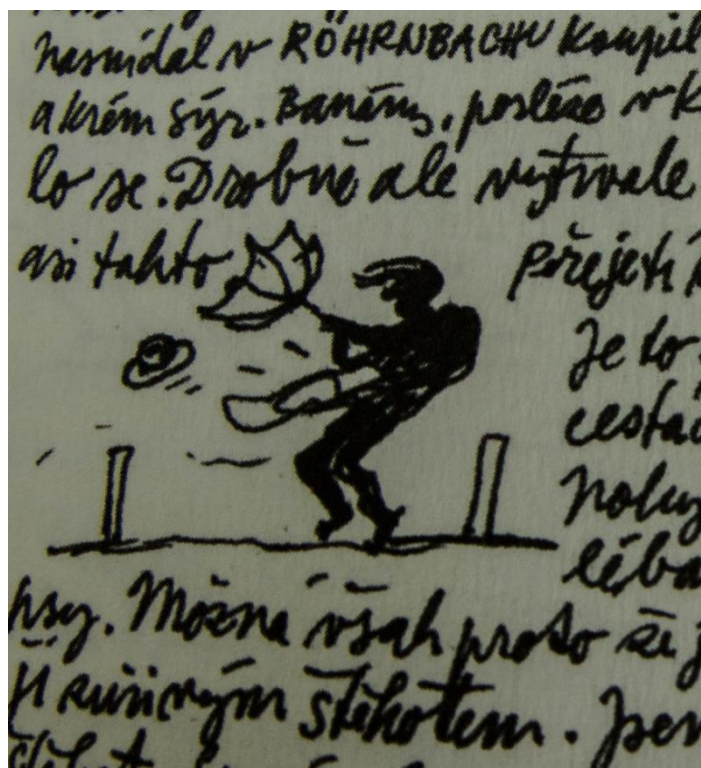 nasnídal v RÖHRNBACHU koupil
a krém sýr. Banány, posléze v k
lo se. Drobně ale vytrvale
asi takto
přejetí
je to
cesta
psy. Možná však proto že j
štěkotem. Jen